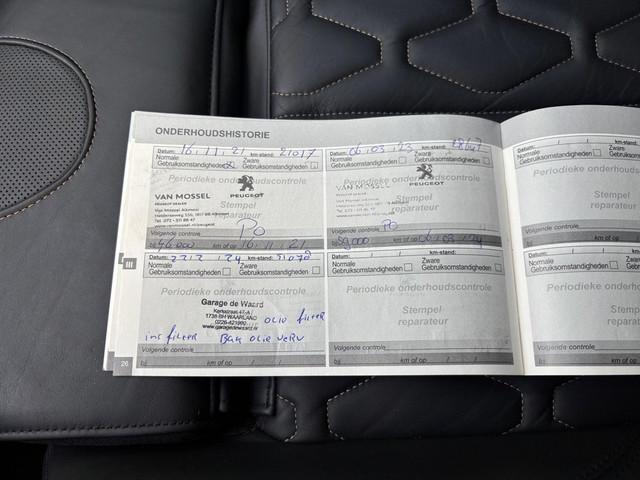 ONDERHOUDSHISTORIE
Datum: 16 . 11 . 21 km-stand: 21017
Normale Zware
Gebruiksomstandigheden Gebruiksomstandigheden
Periodieke onderhoudscontrole
VAN MOSSEL PEUGEOT
Van Mossel Alkmaar
Stempel
reparateur
PO
Volgende controle
bij km of op 16 . 11 . 21
Datum: 06 . 03 . 23 km-stand:
Normale Zware
Gebruiksomstandigheden Gebruiksomstandigheden
Periodieke onderhoudscontrole
VAN MOSSEL PEUGEOT
Stempel
reparateur
PO
Volgende controle
km of op 06 . 03 . 24
Datum: km-stand:
Normale Zware
Gebruiksomstandigheden Gebruiksomstandigheden
Periodieke onderhoudscontrole
Garage de Waard
Kerkstraat 47-A
1738 BH WAARLAND
0226-421980
www.garagedewaard.nl
olie filter
int filter Bak olie verv
Volgende controle
bij km of op / /
Datum: / / km-stand:
Normale Zware
Gebruiksomstandigheden Gebruiksomstandigheden
Periodieke onderhoudscontrole
Stempel
reparateur
Volgende controle
bij km of op / /
Datum:
Normale
Gebruiksomstandigheden
Periodi
Volgende controle
bij
Datum:
Normale
Gebruiksomstandigheden
Periodi
Volgende controle
bij
III
26